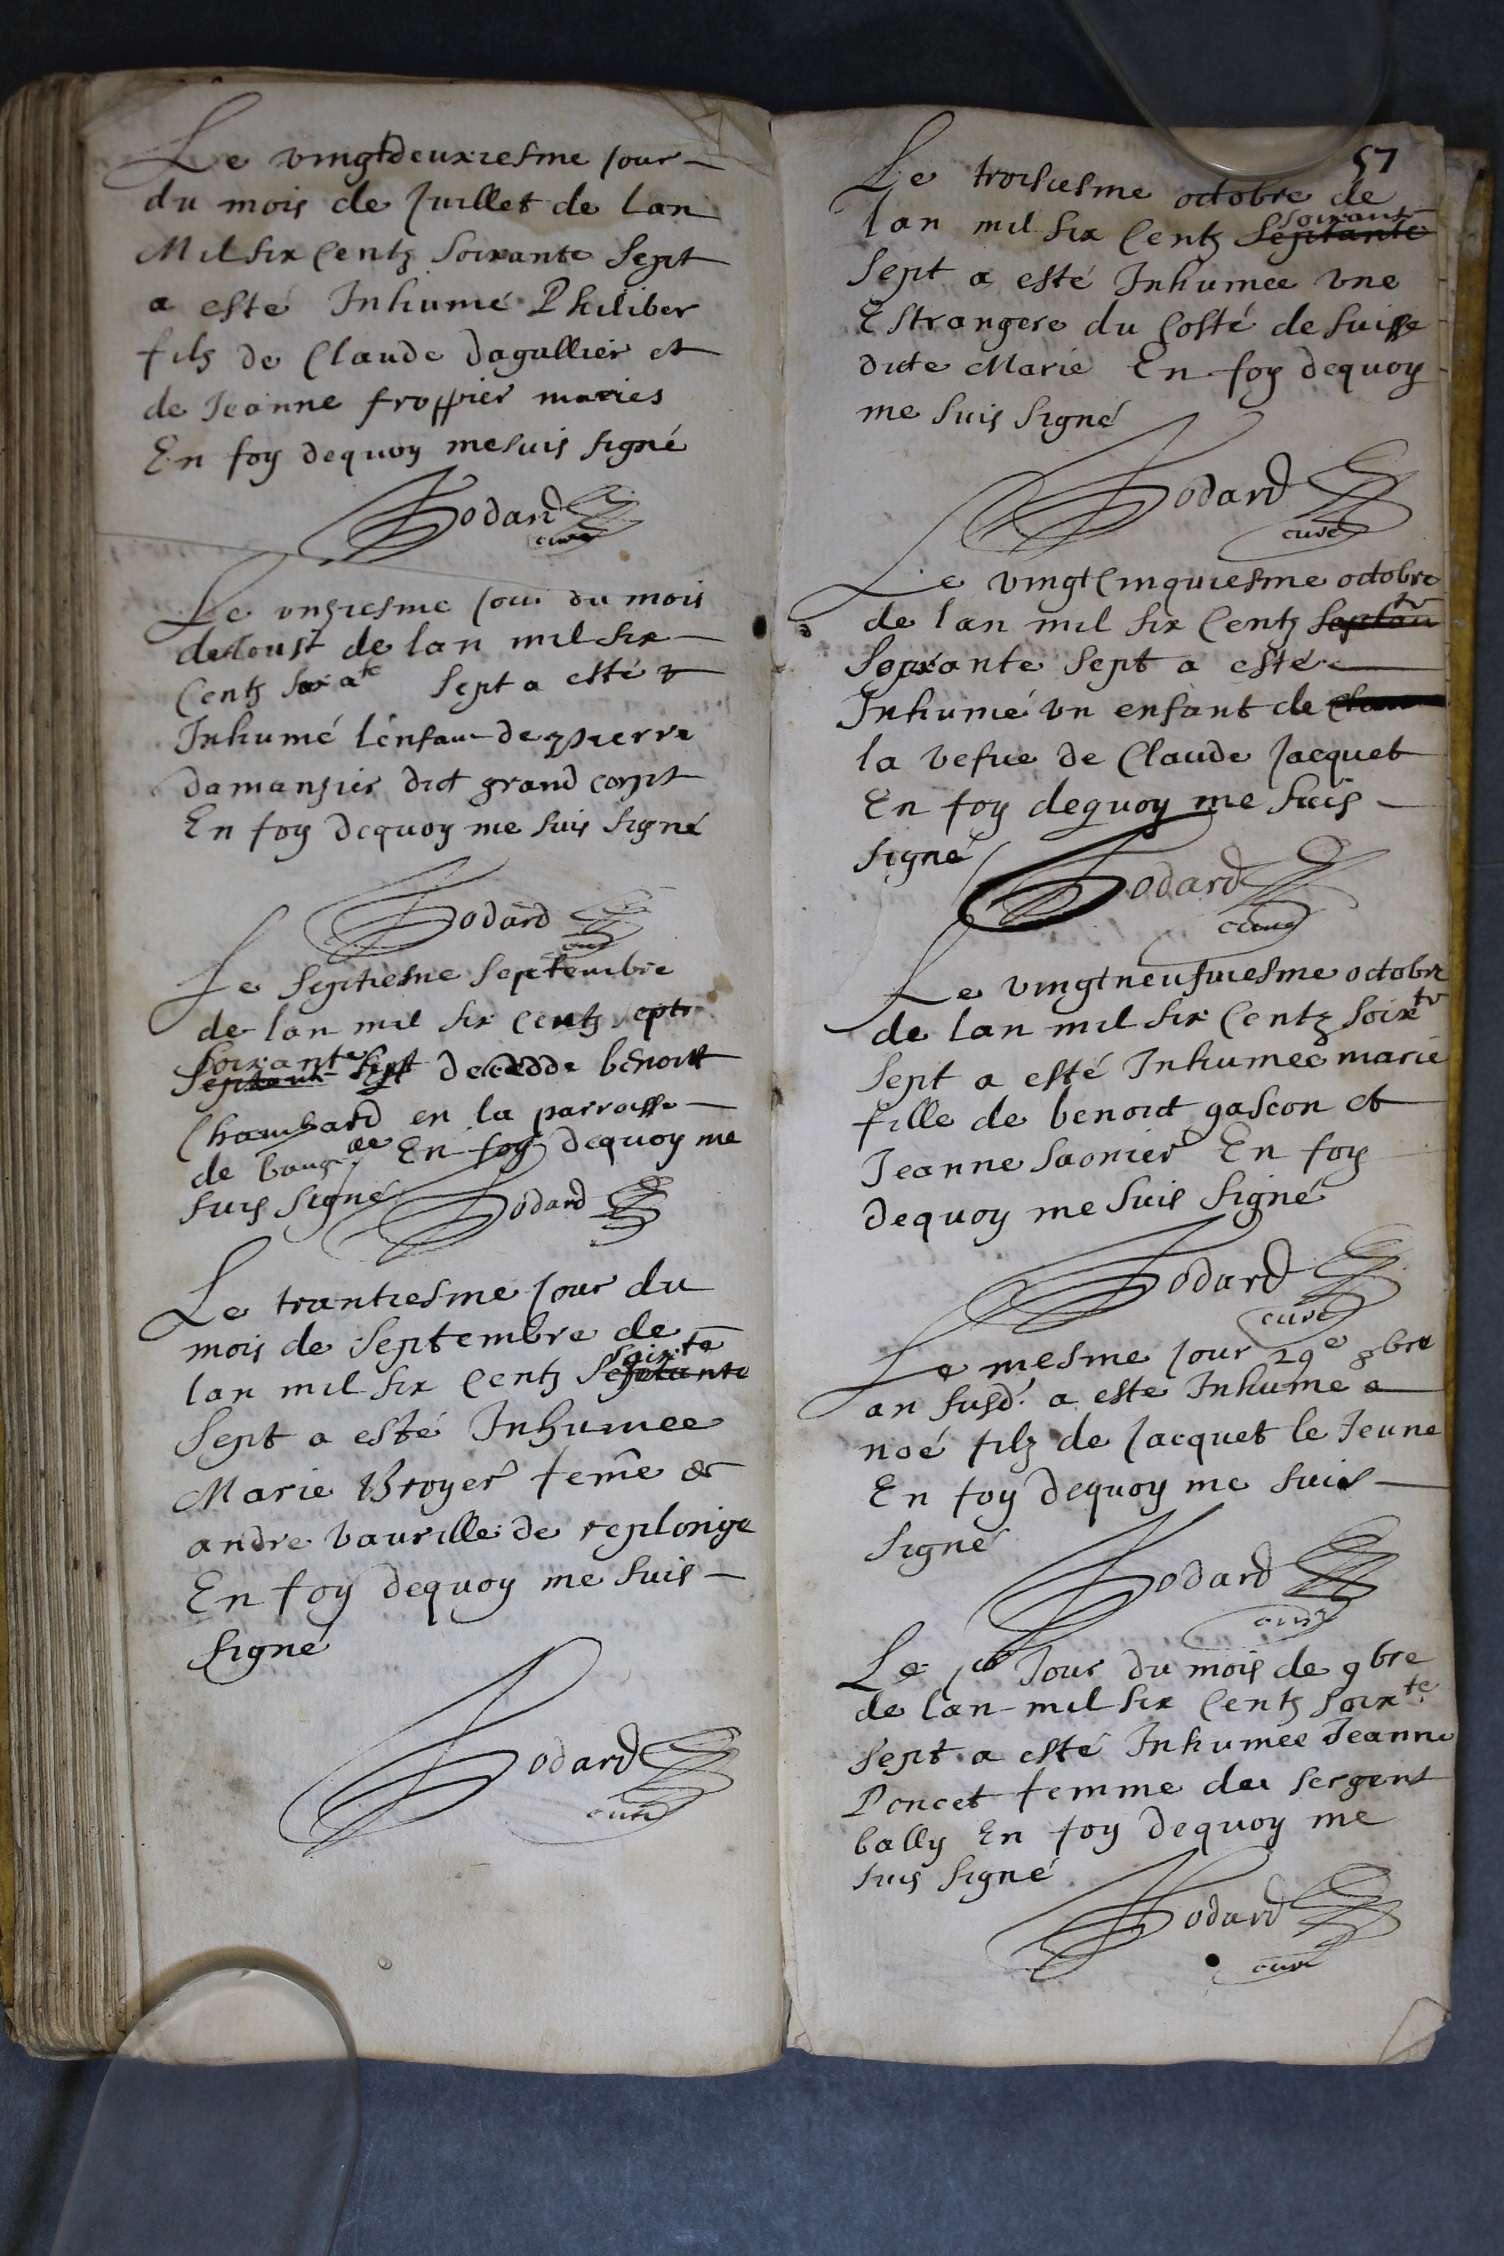 Le vingtdeuxiesme Jour
du mois de Juillet de lan
Mil six Centz Soixante Sept
a esté Inhumé Philiber
filz de Claude dagallier et
de Jeanne froppier maries
En foy dequoy me suis signé
Bodard
curé
Le unziesme Jour du mois
daoust de lan mil six
Centz Soixate Sept a esté
Inhumé lenfant de pierre
damanzier dict grand corps
En foy dequoy me suis signé
Bodard
curé
Le Septiesme Septembre
de lan mil six Centz septe
Soixante
Septante Sept decedde benoist
Chambard en la parroisse
de En foy dequoy me
suis Signé Bodard
Le trantiesme Jour du
mois de Septembre de
Soixte
lan mil six Centz Septante
Sept a esté Inhumee
Marie Broyer feme de
andre vaurille de replonge
En foy dequoy me suis
signé
Bodard
curé
57
Le troisiesme octobre de
Soixante
lan mil six Centz Septante
Sept a esté Inhumee une
Estrangere du Costé de suisse
dicte Marie En foy dequoy
me suis signé
Bodard
curé
Le vingtCinquiesme octobre
de lan mil six Centz Septan
Soixante Sept a esté
Inhumé un enfant de Clau
la vefue de Claude Jacquet
En foy dequoy me suis
signé
Bodard
curé
Le vingtneufuiesme octobre
de lan mil six Centz Soixte
Sept a esté Inhumee marie
fille de benoict gascon et
Jeanne Saonier En foy
dequoy me suis signé
Bodard
curé
Le mesme Jour 29e 8bre
an susd. a este Inhume
noé filz de Jacquet le Jeune
En foy dequoy me suis
signé
Bodard
curé
Le Jour du mois de 9bre
de lan mil six Centz Soixte
Sept a esté Inhumee Jeanne
Poncet femme du sergent
bally En foy dequoy me
suis signé
Bodard
curé